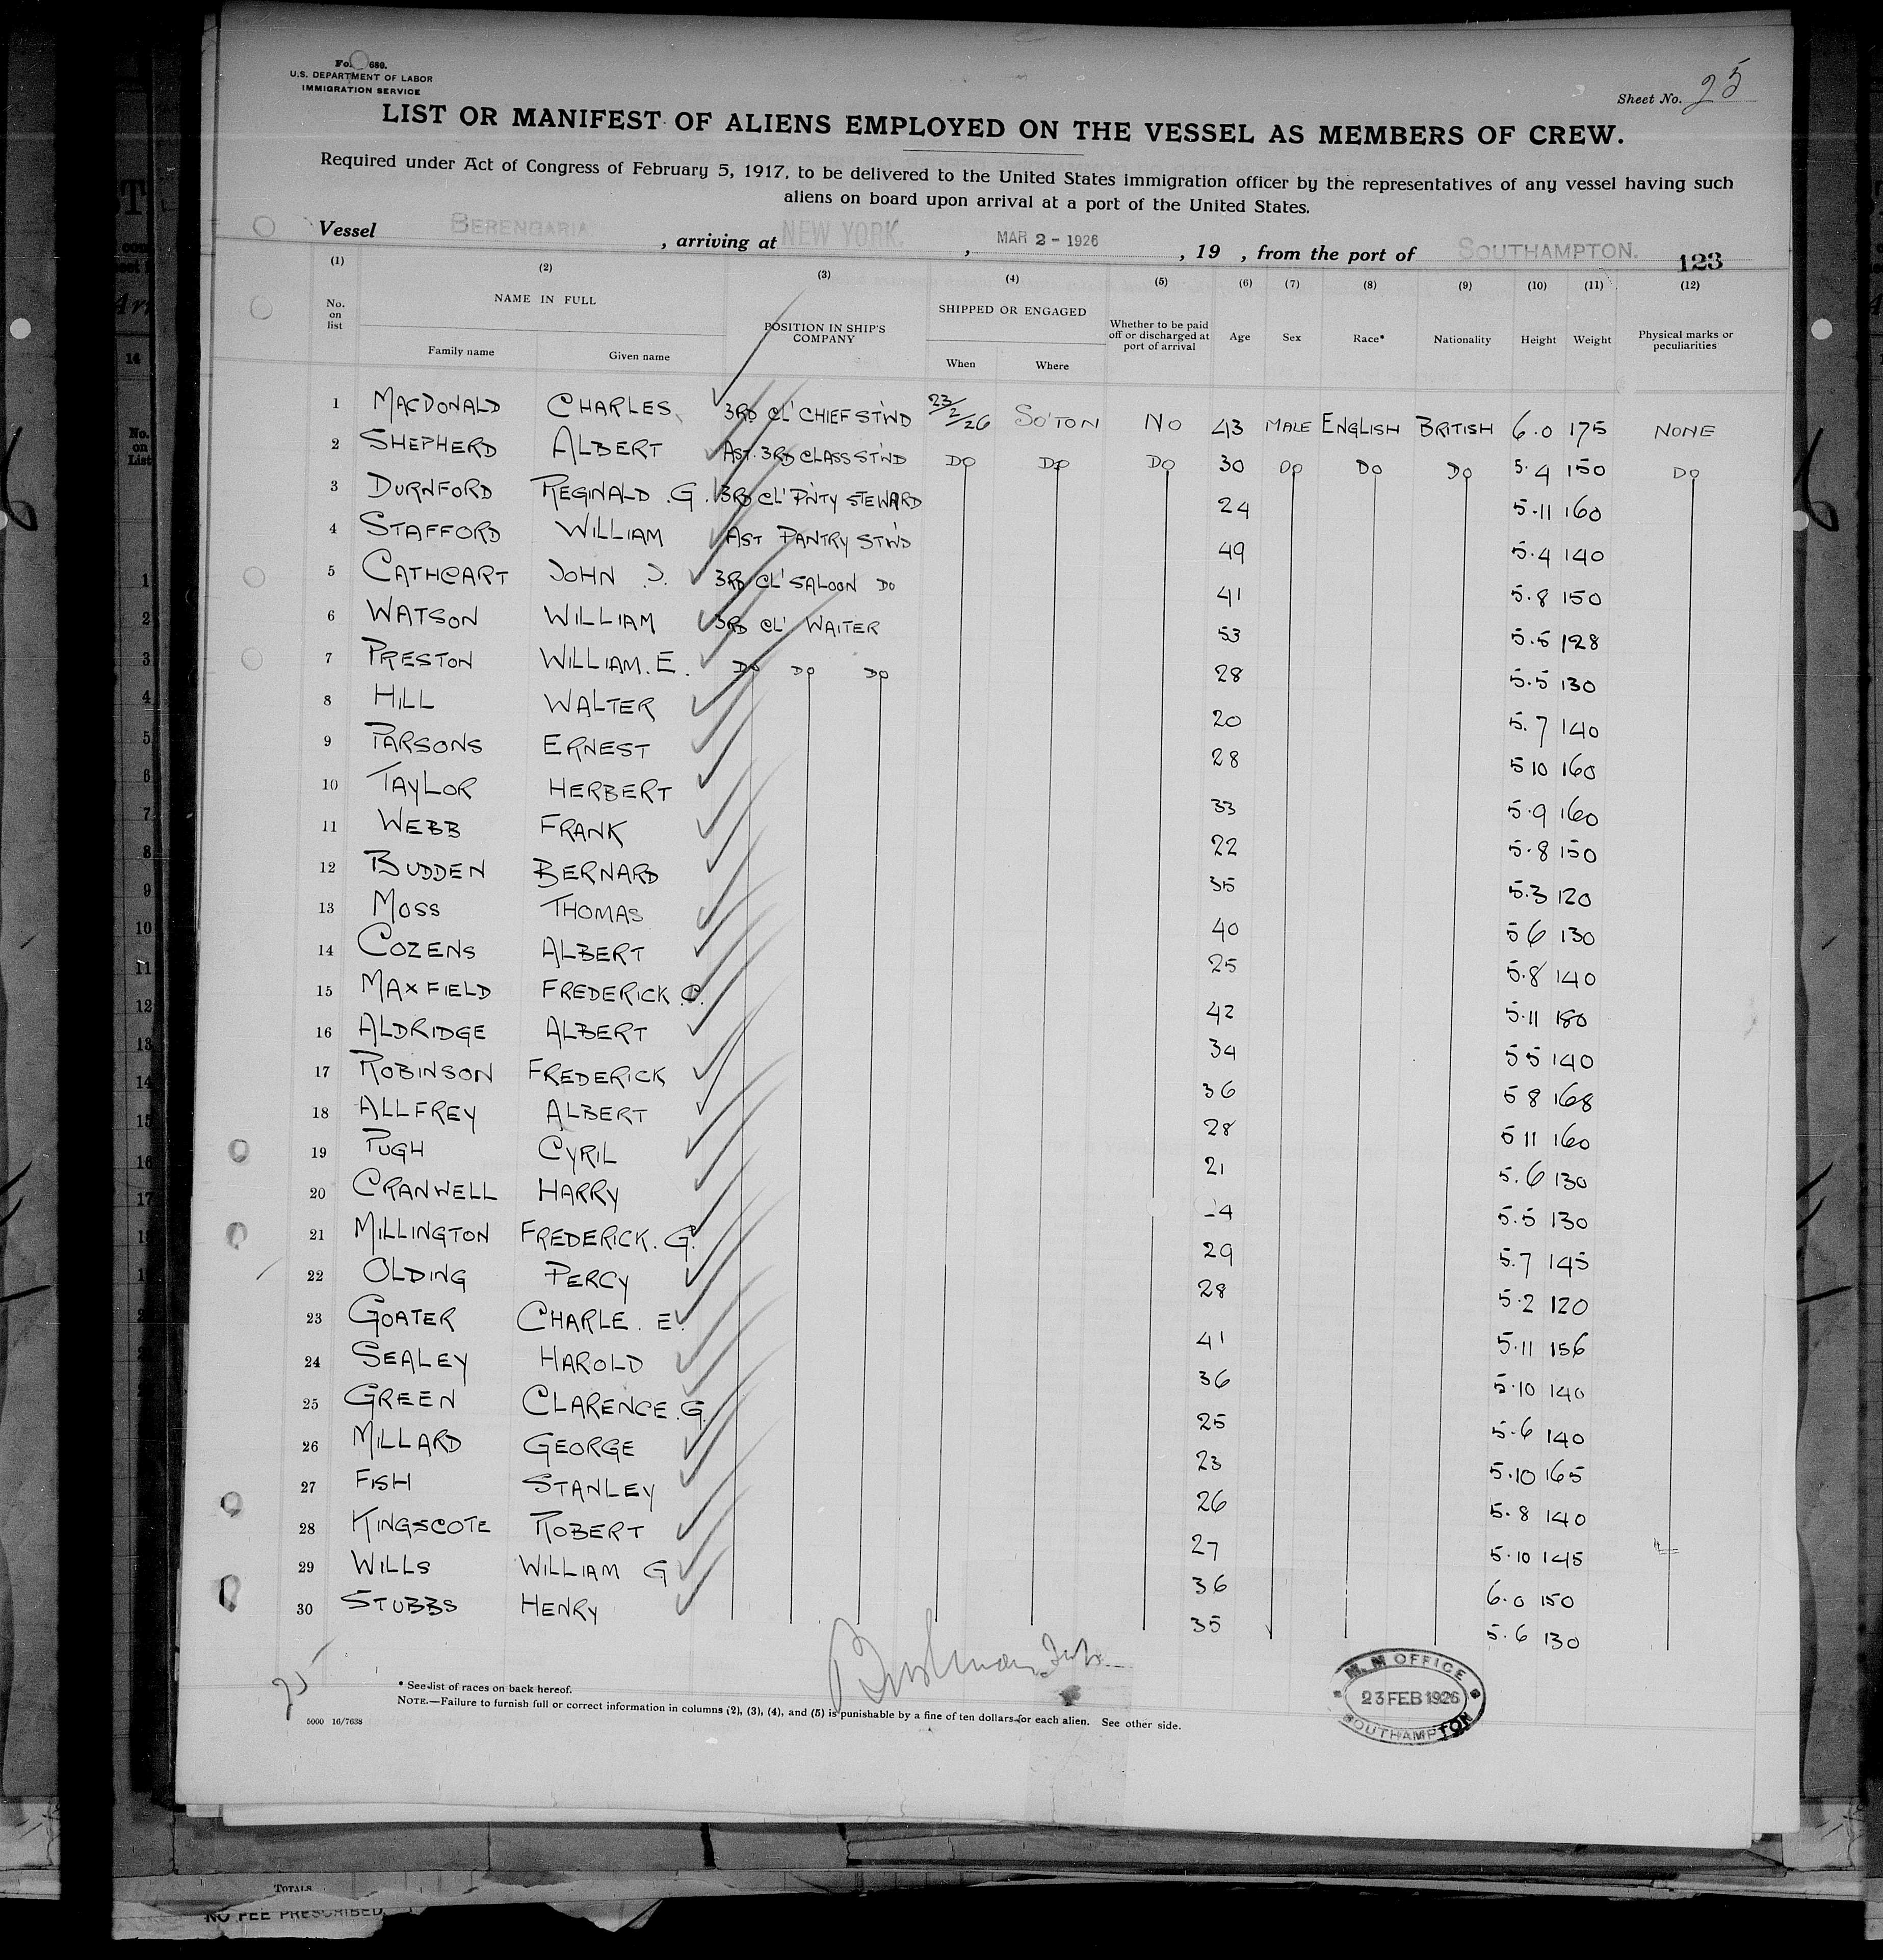 U.S. DEPARTMENT OF LABOR
IMMIGRATION SERVICE
Sheet No. 25
LIST OR MANIFEST OF ALIENS EMPLOYED ON THE VESSEL AS MEMBERS OF CREW.
Required under Act of Congress of February 5, 1917, to be delivered to the United States immigration officer by the representatives of any vessel having such
aliens on board upon arrival at a port of the United States.
Vessel BERENGARIA, arriving at NEW YORK., MAR 2 - 1926, 19 , from the port of SOUTHAMPTON. 123
(1) (2) (3) (4) (5) (6) (7) (8) (9) (10) (11) (12)
No. on list NAME IN FULL Family name Given name POSITION IN SHIP'S COMPANY SHIPPED OR ENGAGED When Where Whether to be paid off or discharged at port of arrival Age Sex Race* Nationality Height Weight Physical marks or peculiarities
1 MACDONALD CHARLES 3RD CL' CHIEF ST'WD 23/2/26 SO'TON NO 43 MALE ENGLISH BRITISH 6.0 175 NONE
2 SHEPHERD ALBERT AST. 3RD CLASS ST'WD DO DO DO 30 DO DO DO 5.4 150 DO
3 DURNFORD REGINALD .G. 3RD CL' P'NTY STEWARD 24 5.11 160
4 STAFFORD WILLIAM AST PANTRY ST'WD 49 5.4 140
5 CATHCART JOHN J. 3RD CL' SALOON DO 41 5.8 150
6 WATSON WILLIAM 3RD CL' WAITER 53 5.5 128
7 PRESTON WILLIAM. E. DO DO DO 28 5.5 130
8 HILL WALTER 20 5.7 140
9 PARSONS ERNEST 28 5 10 160
10 TAYLOR HERBERT 33 5.9 160
11 WEBB FRANK 22 5.8 150
12 BUDDEN BERNARD 35 5.3 120
13 MOSS THOMAS 40 5 6 130
14 COZENS ALBERT 25 5.8 140
15 MAXFIELD FREDERICK .C. 42 5.11 180
16 ALDRIDGE ALBERT 34 5 5 140
17 ROBINSON FREDERICK 36 5 8 168
18 ALLFREY ALBERT 28 5 11 160
19 PUGH CYRIL 21 5.6 130
20 CRANWELL HARRY 4 5.5 130
21 MILLINGTON FREDERICK. G. 29 5.7 145
22 OLDING PERCY 28 5.2 120
23 GOATER CHARLE. E. 41 5.11 156
24 SEALEY HAROLD 36 5.10 140
25 GREEN CLARENCE .G. 25 5.6 140
26 MILLARD GEORGE 23 5.10 165
27 FISH STANLEY 26 5.8 140
28 KINGSCOTE ROBERT 27 5.10 145
29 WILLS WILLIAM G 36 6.0 150
30 STUBBS HENRY 35 5.6 130
* See list of races on back hereof.
NOTE.—Failure to furnish full or correct information in columns (2), (3), (4), and (5) is punishable by a fine of ten dollars for each alien. See other side.
5000 16/7638
M. M OFFICE
23 FEB 1926
SOUTHAMPTON
TOTALS
NO FEE PRESCRIBED.